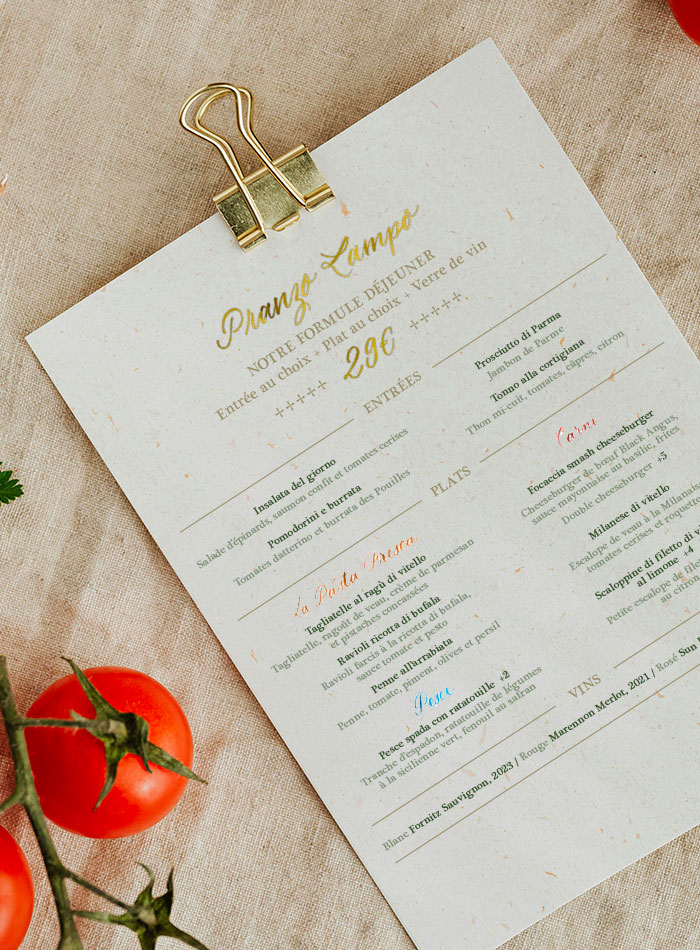 Pranzo Lampo
NOTRE FORMULE DÉJEUNER
Entrée au choix + Plat au choix + Verre de vin
+++++ 29€ +++++
ENTRÉES
Insalata del giorno
Salade d'épinards, saumon confit et tomates cerises
Pomodorini e burrata
Tomates datterino et burrata des Pouilles
Prosciutto di Parma
Jambon de Parme
Tonno alla cortigiana
Thon mi-cuit, tomates, câpres, citron
PLATS
La Pasta Fresca
Tagliatelle al ragù di vitello
Tagliatelle, ragoût de veau, crème de parmesan
et pistaches concassées
Ravioli ricotta di bufala
Ravioli farcis à la ricotta di bufala,
sauce tomate et pesto
Penne all'arrabiata
Penne, tomate, piment, olives et persil
Pesce
Pesce spada con ratatouille +2
Tranche d'espadon, ratatouille de légumes
à la sicilienne vert, fenouil au safran
Carni
Focaccia smash cheeseburger
Cheeseburger de bœuf Black Angus,
sauce mayonnaise au basilic, frites
Double cheeseburger +5
Milanese di vitello
Escalope de veau à la Milanaise
tomates cerises et roquette
Scaloppine di filetto di
al limone +4
Petite escalope de
au
VINS
Blanc Fornitz Sauvignon, 2023 / Rouge Marennon Merlot, 2021 / Rosé Sun